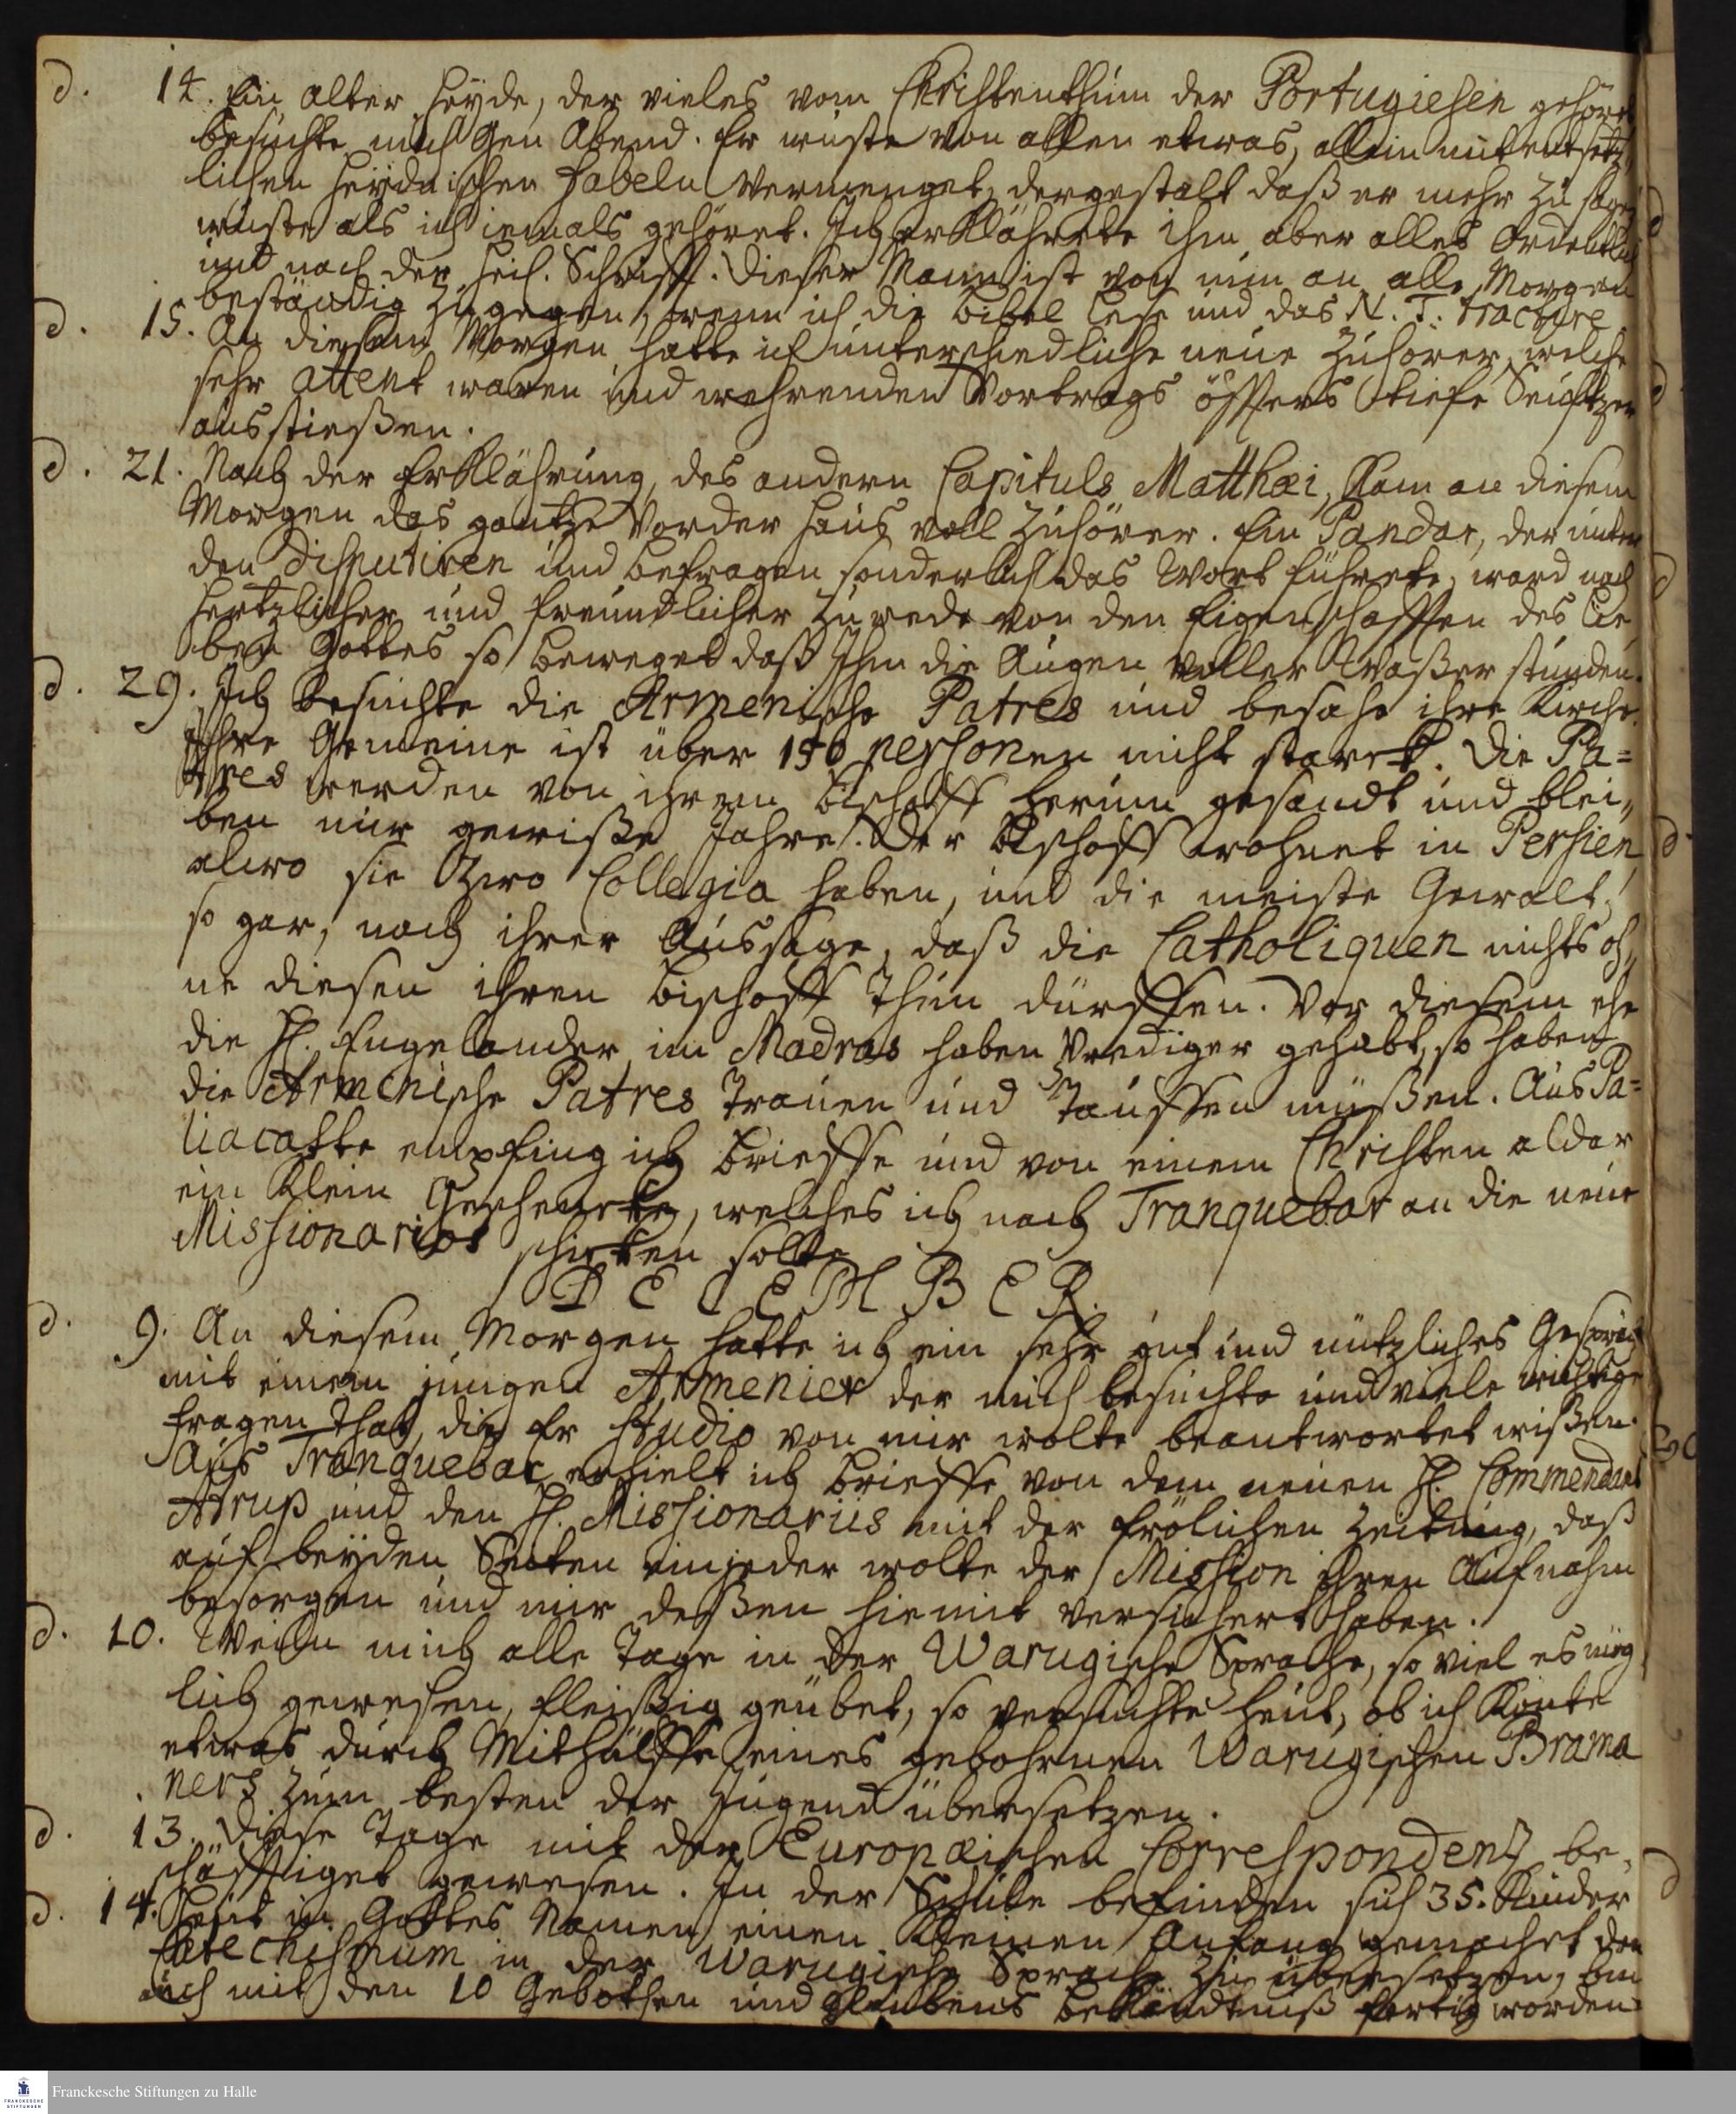 d. 14. Ein alter Heyde, der vieles vom Christenthum der Portugiesen gehört
besuchte mich gen Abend. Er wuste von allen etwas, allein mit entsetz-
lichen Heydnischen Fabeln vermenget, dergestalt daß er mehr zu sagen
wuste als ich iemals gehöret. Ich erklährete ihm aber alles Ordentlich
und nach der Heil. Schrifft. Dieser Mann ist von nun an alle Morgen
beständig zugegen, wenn ich die Bibel lese und das N. T. tractire
d. 15. An diesem Morgen hatte ich unterschiedliche neue Zuhörer, welche
sehr attent waren und wehrenden Vortrags öffters tiefe Seufftzer
ausstießen.
d. 21. Nach der Erklährung, des andern Capituls Matthæi, kam an diesem
Morgen das gantze Vorder Haus voll Zuhörer. Ein Pandar, der unter
den disputiren und befragen sonderlich das Wort führete, ward nach
hertzlicher und freundlicher Zurede von den Eigenschafften des lie-
ben Gottes so beweget daß Ihm die Augen voller Waßer stunden.
d. 29. Ich besuchte die Armenische Patres und besahe ihre Kirche.
Ihre Gemeine ist über 150 personen nicht starck. Die Pa=
tres werden von ihrem Bischoff herum gesandt und blei„
ben nur gewiße Jahre. Der Bischoff wohnet in Persien,
alwo sie zwo Collegia haben, und die meiste Gewalt,
so gar, nach ihrer Aussage, daß die Catholiquen nichts oh„
ne diesen ihren Bischoff thun dürffen. Vor diesem ehe
die H. Engelander in Madras haben Prediger gehabt, so haben
die Armenische Patres Trauen und Tauffen müßen. Aus Pa=
liacatte empfing ich Brieffe und von einem Christen aldar
ein klein Geschencke, welches ich nach Tranquebar an die neue
Missionarios schicken solte
DECEMBER.
d. 9. An diesem Morgen hatte ich ein sehr gut und nützliches Gespräch
mit einem jungen Armenier der mich besuchte und viele wichtige
Fragen that, die Er studio von mir wolte beantwortet wißen.
Aus Tranquebar erhielt ich Brieffe von dem neuen H. Commendant
Atrup und den H. Missionariis mit der frölichen Zeitung, daß
auf beyden Seiten einjeder wolte der Mission ihren Aufnahm
besorgen und mir deßen hiemit versichert haben.
d. 10. Weiln mich alle Tage in der Warugische Sprache, so viel es mög
lich gewesen, fleißig geübet, so versuchte heut, ob ich könte
etwas durch Mithülffe eines gebohrnen Warugischen Brama
ners zum besten der Jugend übersetzen.
d. 13. Diese Tage mit der Europæischen Correspondenz be„
schäfftiget gewesen. In der Schule befinden sich 35. Kinder
d. 14. Heut in Gottes Namen einen kleinen Anfang gemachet den
Catechismum in der Warugische Sprache zu übersetzen, bin
auch mit den 10 Gebothen und Glaubens Bekändtniß fertig worden
Franckesche Stiftungen zu Halle
FRANCKESCHE
STIFTUNGEN